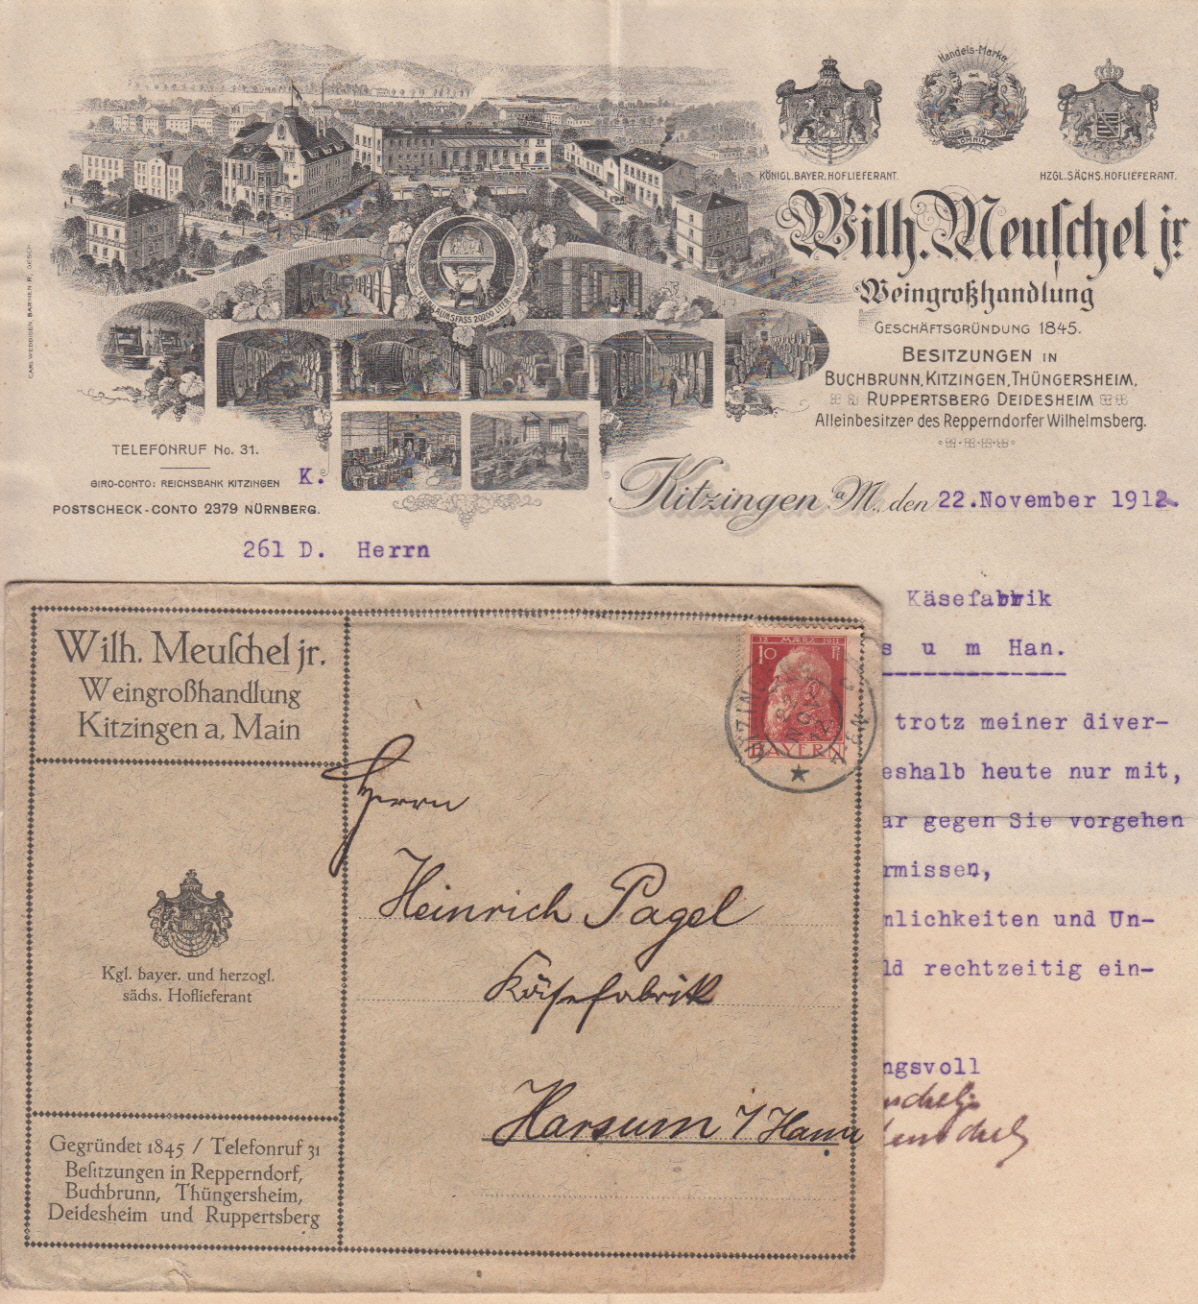 Handels-Marke
KÖNIGL. BAYER. HOFLIEFERANT.
HZGL. SÄCHS. HOFLIEFERANT.
Wilh. Meuſchel jr.
Weingroßhandlung
GESCHÄFTSGRÜNDUNG 1845.
BESITZUNGEN IN
BUCHBRUNN, KITZINGEN, THÜNGERSHEIM,
RUPPERTSBERG DEIDESHEIM
Alleinbesitzer des Repperndorfer Wilhelmsberg.
20200 LITER
TELEFONRUF No. 31.
GIRO-CONTO: REICHSBANK KITZINGEN
K.
POSTSCHECK-CONTO 2379 NÜRNBERG.
Kitzingen a/M., den 22.November 1912.
261 D. Herrn
Käsefabrik
s u m Han.
trotz meiner diver-
eshalb heute nur mit,
ar gegen Sie vorgehen
rmissen,
nlichkeiten und Un-
ld rechtzeitig ein-
ngsvoll
Wilh. Meuſchel jr.
Weingroßhandlung
Kitzingen a. Main
10 Pf
BAYERN
Herrn
Heinrich Pagel
Käsefabrik
Harsum
Kgl. bayer. und herzogl.
sächs. Hoflieferant
Gegründet 1845 / Telefonruf 31
Beſitzungen in Repperndorf,
Buchbrunn, Thüngersheim,
Deidesheim und Ruppertsberg